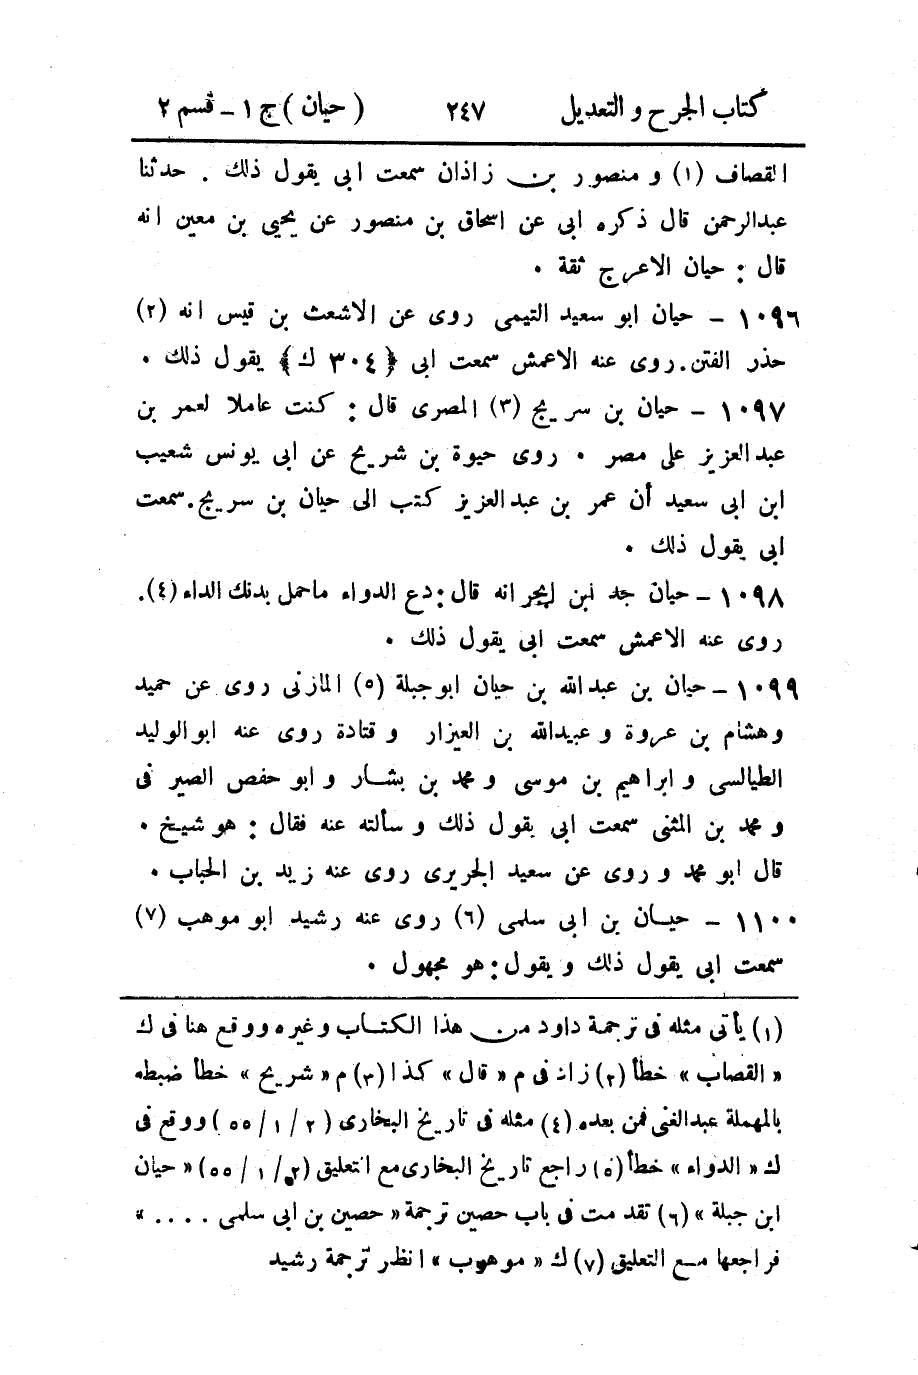 كتاب الجرح و التعديل ٢٤٧ ( حيان ) ج ١ - قسم ٢
القصاف (١) و منصور بن زاذان سمعت ابى يقول ذلك . حدثنا
عبدالرحمن قال ذكره ابى عن اسحاق بن منصور عن يحيى بن معين انه
قال : حيان الاعرج ثقة .
١٠٩٦ - حيان ابو سعيد التيمى روى عن الاشعث بن قيس انه (٢)
حذر الفتن . روى عنه الاعمش سمعت ابى ﴿٣٠٤ ك﴾ يقول ذلك .
١٠٩٧ - حيان بن سريج (٣) المصرى قال : كنت عاملا لعمر بن
عبد العزيز على مصر . روى حيوة بن شريح عن ابى يونس شعيب
ابن ابى سعيد أن عمر بن عبد العزيز كتب الى حيان بن سريج . سمعت
ابى يقول ذلك .
١٠٩٨ - حيان جد ابن ابجر انه قال : دع الدواء ماحمل بدنك الداء (٤).
روى عنه الاعمش سمعت ابى يقول ذلك .
١٠٩٩ - حيان بن عبد الله بن حيان ابو جبلة (٥) المازنى روى عن حميد
وهشام بن عروة و عبيدالله بن العيزار و قتادة روى عنه ابو الوليد
الطيالسى و ابراهيم بن موسى و محمد بن بشار و ابو حفص الصير فى
و محمد بن المثنى سمعت ابى يقول ذلك و سألته عنه فقال : هو شيخ .
قال ابو محمد و روى عن سعيد الجريرى روى عنه زيد بن الحباب .
١١٠٠ - حيان بن ابى سلمى (٦) روى عنه رشيد ابو موهب (٧)
سمعت ابى يقول ذلك و يقول : هو مجهول .
(١) يأتى مثله فى ترجمة داود من هذا الكتاب وغيره ووقع هنا فى ك
« القصاب » خطأ (٢) زاد فى م « قال » كذا (٣) م « شريح » خطأ ضبطه
بالمهملة عبدالغنى فمن بعده (٤) مثله فى تاريخ البخارى ( ٢ / ١ / ٥٥ ) ووقع فى
ك « الدواء » خطأ (٥) راجع تاريخ البخارى مع التعليق (٢ / ١ / ٥٥) « حيان
ابن جبلة » (٦) تقد مت فى باب حصين ترجمة « حصين بن ابى سلمى .... »
فراجعها مع التعليق (٧) ك « موهوب » انظر ترجمة رشيد